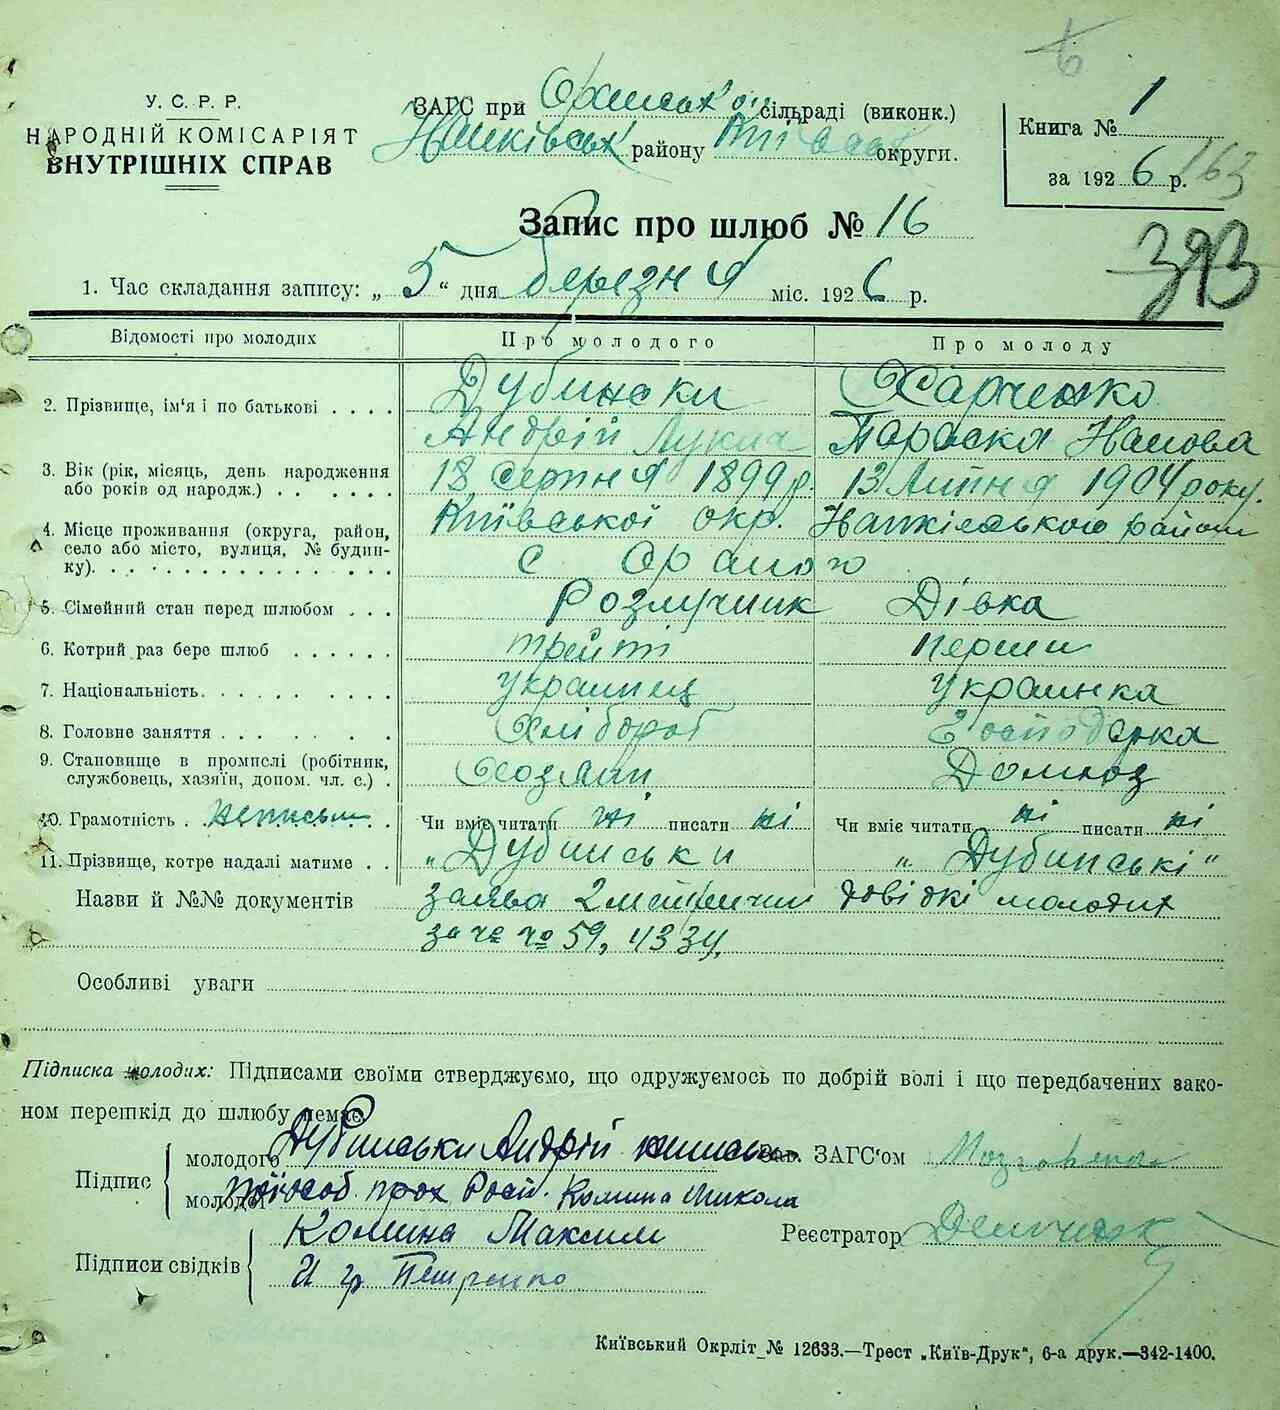 У. С. Р. Р.
НАРОДНІЙ КОМІСАРІЯТ
ВНУТРІШНІХ СПРАВ
ЗАГС при сільраді (виконк.)
району округи.
Книга № 1
за 1926 р.
163
Запис про шлюб № 16
393
1. Час складання запису: „5“ дня березня міс. 1926 р.
Відомості про молодих Про молодого Про молоду
2. Прізвище, ім'я і по батькові . . . . Дубински Харченко
Андрій Лукич Параска
3. Вік (рік, місяць, день народження або років од народж.) . . . . . . 18 серпня 1899 р. 13 Липня 1904 року.
4. Місце проживання (округа, район, село або місто, вулиця, № будинку). Київської окр. району
с
5. Сімейний стан перед шлюбом . . . Розлучник Дівка
6. Котрий раз бере шлюб . . . . . . третій перши
7. Національність. . . . . . . . . . украинец украинка
8. Головне заняття . . . . . . . Хлібороб Господарка
9. Становище в промислі (робітник, службовець, хазяїн, допом. чл. с.) . Хозяин Домхоз
10. Грамотність . неписьм Чи вміє читати ні писати ні Чи вміє читати ні писати ні
11. Прізвище, котре надалі матиме . . „Дубинськи „Дубинські“
Назви й №№ документів заява 2 метричні довідкі молодих
за № № 59, 4334,
Особливі уваги
Підписка молодих: Підписами своїми стверджуємо, що одружуємось по добрій волі і що передбачених зако-
ном перешкід до шлюбу немає.
Підпис молодого Дубинськи Андрій Зав. ЗАГС'ом
молодої Комина Микола
Підписи свідків Комина Максим Реєстратор
И гр Петренко
Київський Окрліт № 12633.—Трест „Київ-Друк“, 6-а друк.—342-1400.